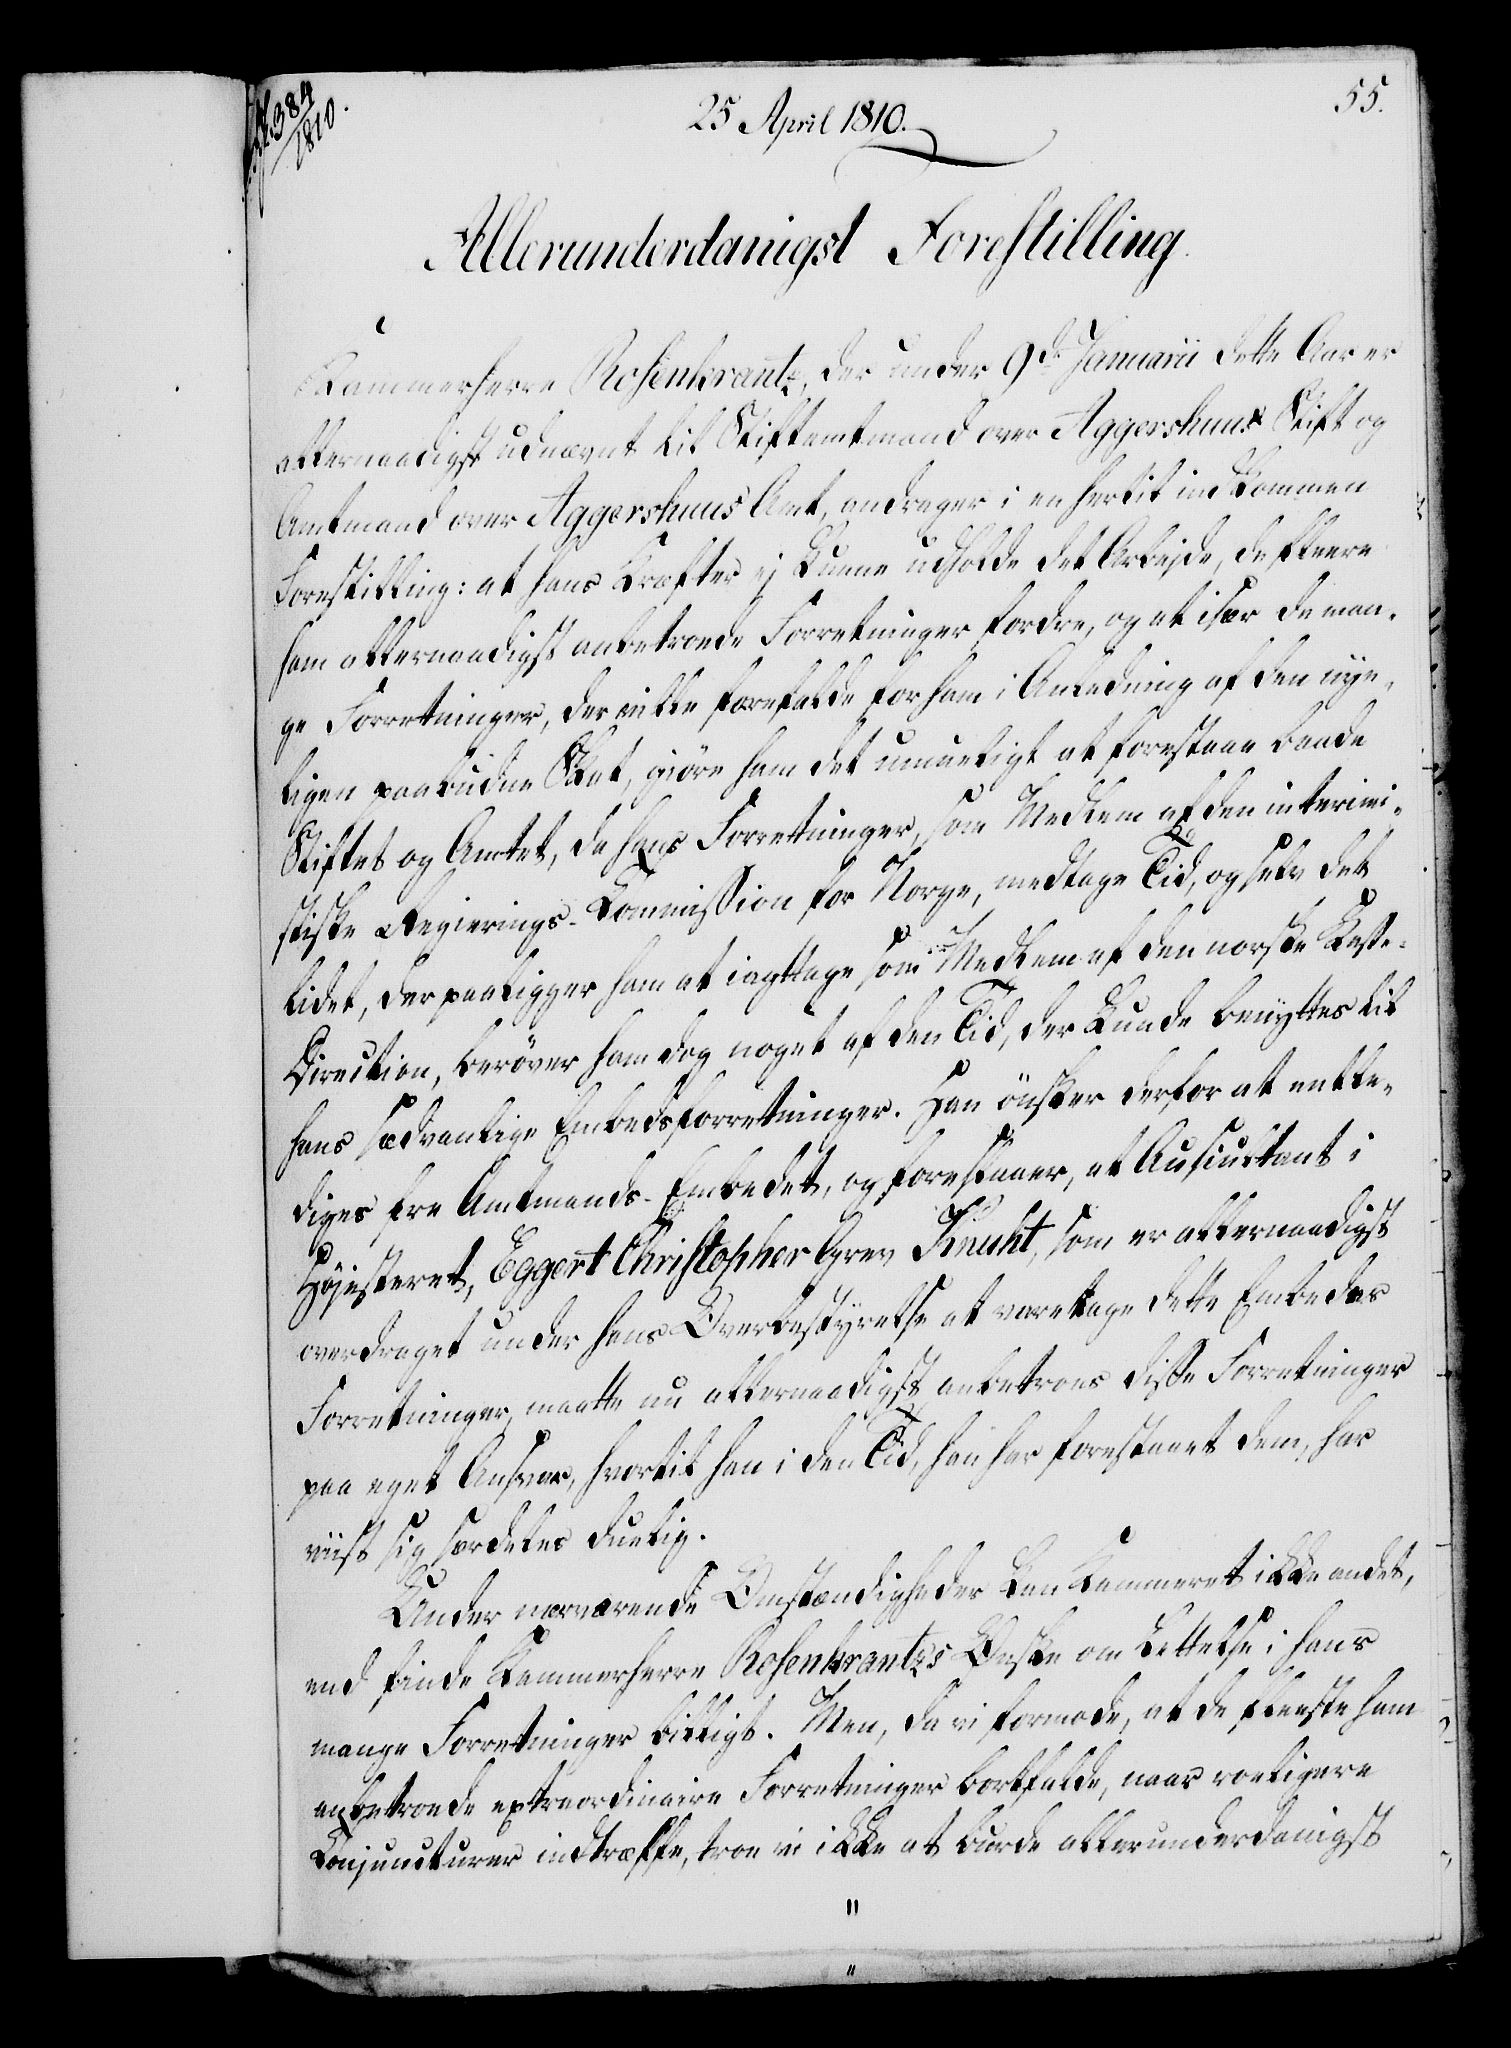 384
1810.
25 April 1810.
55.
Allerunderdanigst Forestilling.
Kammerherre Rosenkrantz, der under 9de Januarii dette Aar er
allernaadigst udnævnt til Stiftamtmand over Aggershuus Stift og
Amtmand over Aggershuus Amt, andrager i en hertil indkommen
Forestilling: at hans Kræfter ej kunne udholde det Arbejde, de flere
ham allernaadigst anbetroede Forretninger fordre, og at især de man-
ge Forretninger, der ville forefalde for ham i Anledning af den nye-
ligen paabudne Skat, giöre ham det umueligt at forestaae baade
Stiftet og Amtet, da hans Forretninger, som Medlem af den interimi-
stiske Regierings-Commission for Norge, medtage Tid, og selv det
lidet, der paaligger ham at iagttage som Medlem af den norske Poste-
Direction, beröver ham dog noget af den Tid, der kunde benyttes til
hans sædvanlige Embedsforretninger. Han önsker derfor at entle-
diges fra Amtmands-Embedet, og foreslaaer, at Auscultant i
Højesteret, Eggert Christopher Grev Knuht, som er allernaadigst
overdraget under hans Overbestyrelse at varetage dette Embedes
Forretninger, maatte nu allernaadigst anbetroes disse Forretninger
paa eget Ansvar, hvortil han i den Tid, han har forestaaet dem, har
viist sig særdeles duelig.
Under nærværende Omstændigheder kan Kammeret ikke andet,
end finde Kammerherre Rosenkrantzs Ønske om Lettelse i hans
mange Forretninger billigt. Men, da vi formode, at de fleeste ham
anbetroede extraordinaire Forretninger bortfalde, naar roeligere
Conjuncturer indtræffe, troe vi ikke at burde allerunderdanigst
"
"